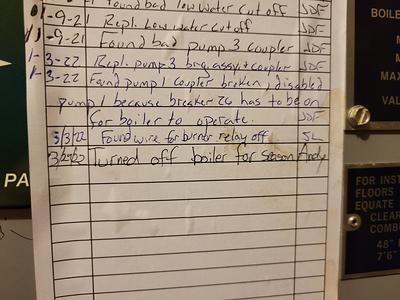 Found bad low water cut off JDF
1-9-21 Repl. Low water cut off JDF
1-9-21 Found bad pump 3 coupler JDF
1-3-22 Repl. pump 3 brg. assy. + coupler JDF
1-3-22 Found pump 1 coupler broken, disabled
pump 1 because breaker 26 has to be on
for boiler to operate. JDF
3/3/22 Found wire for burner relay off JL
Turned off boiler for season Andy
PA
BOILE
M
MAX
VAL
FOR INST
FLOORS
EQUATE
CLEAR
COMBU
48"
7'6"